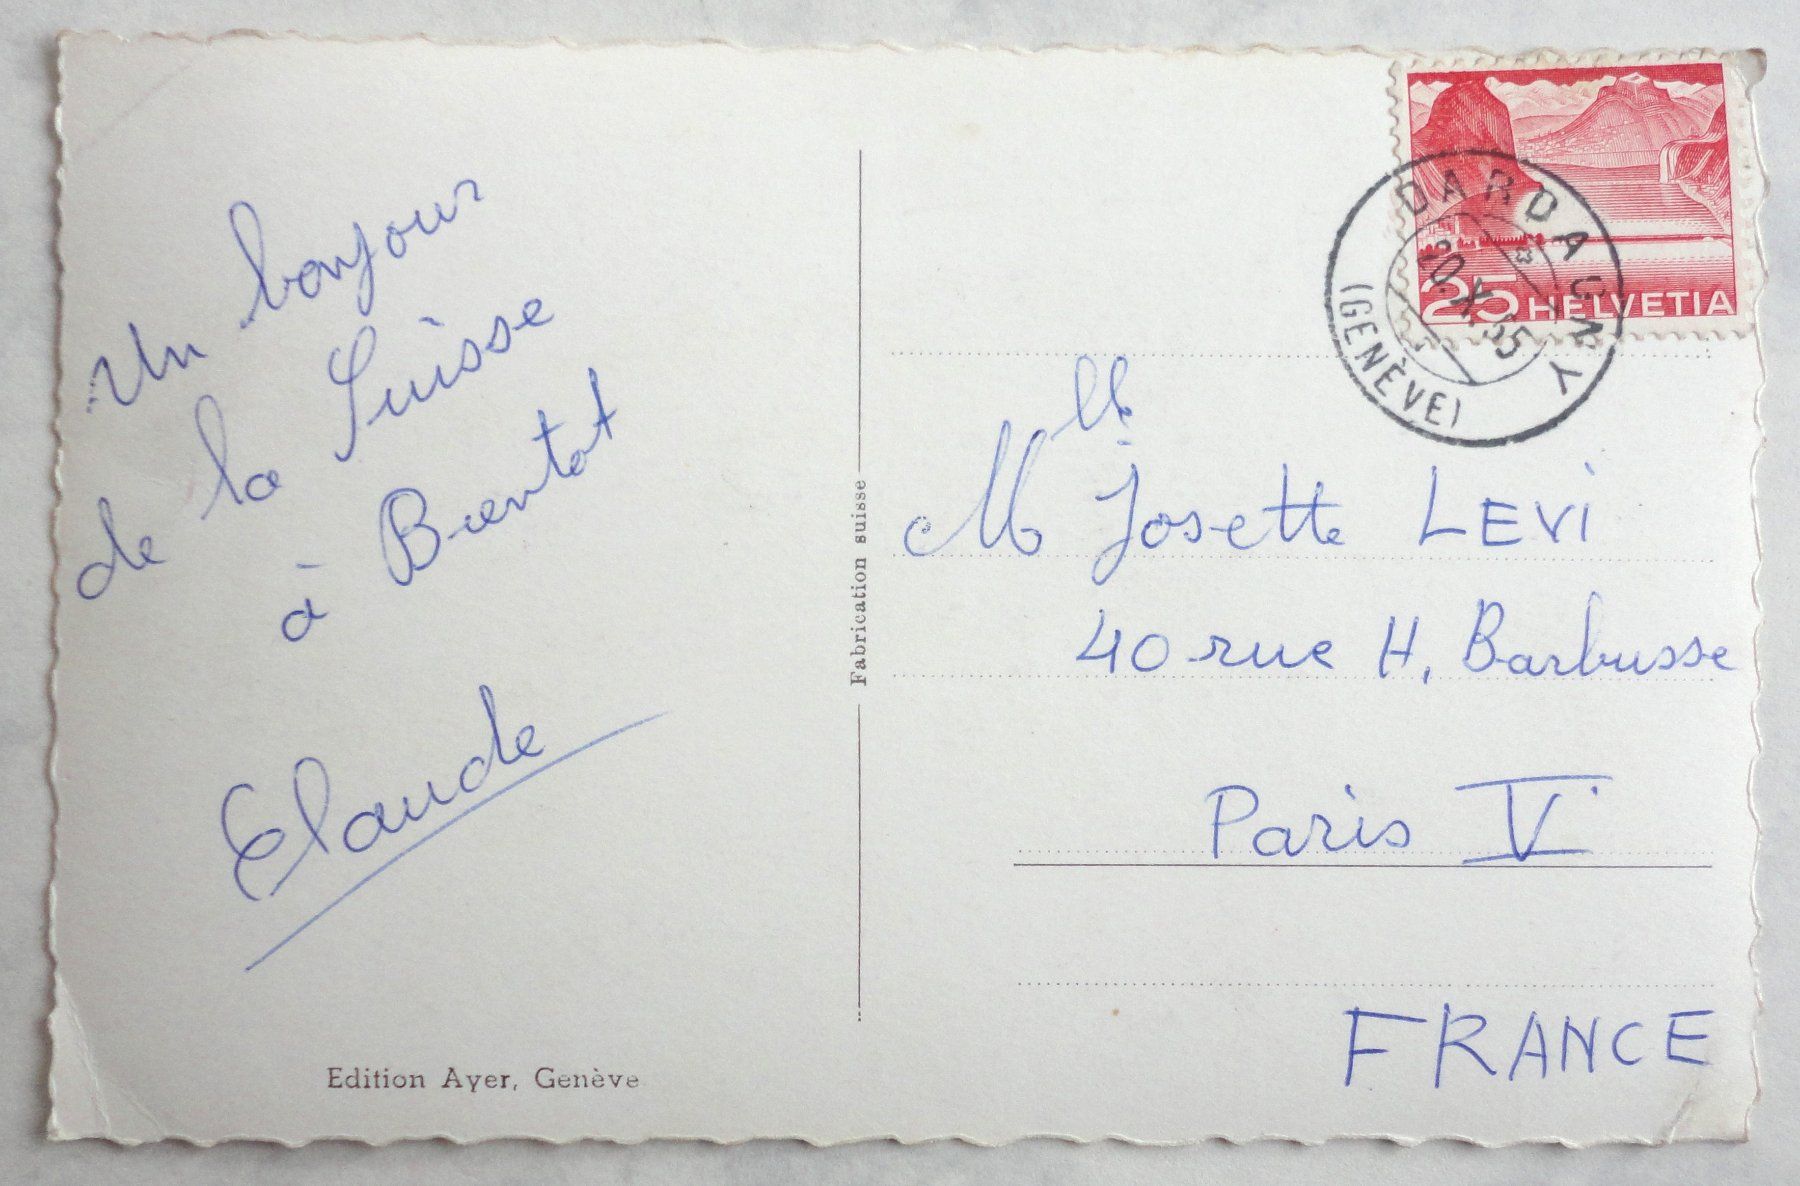 Un bonjour
de la Suisse
à Bientot
Claude
Edition Ayer, Genève
Fabrication suisse
25 HELVETIA
DARDAGNY
20.X.55
(GENÈVE)
Mlle Josette LEVI
40 rue H. Barbusse
Paris V
FRANCE